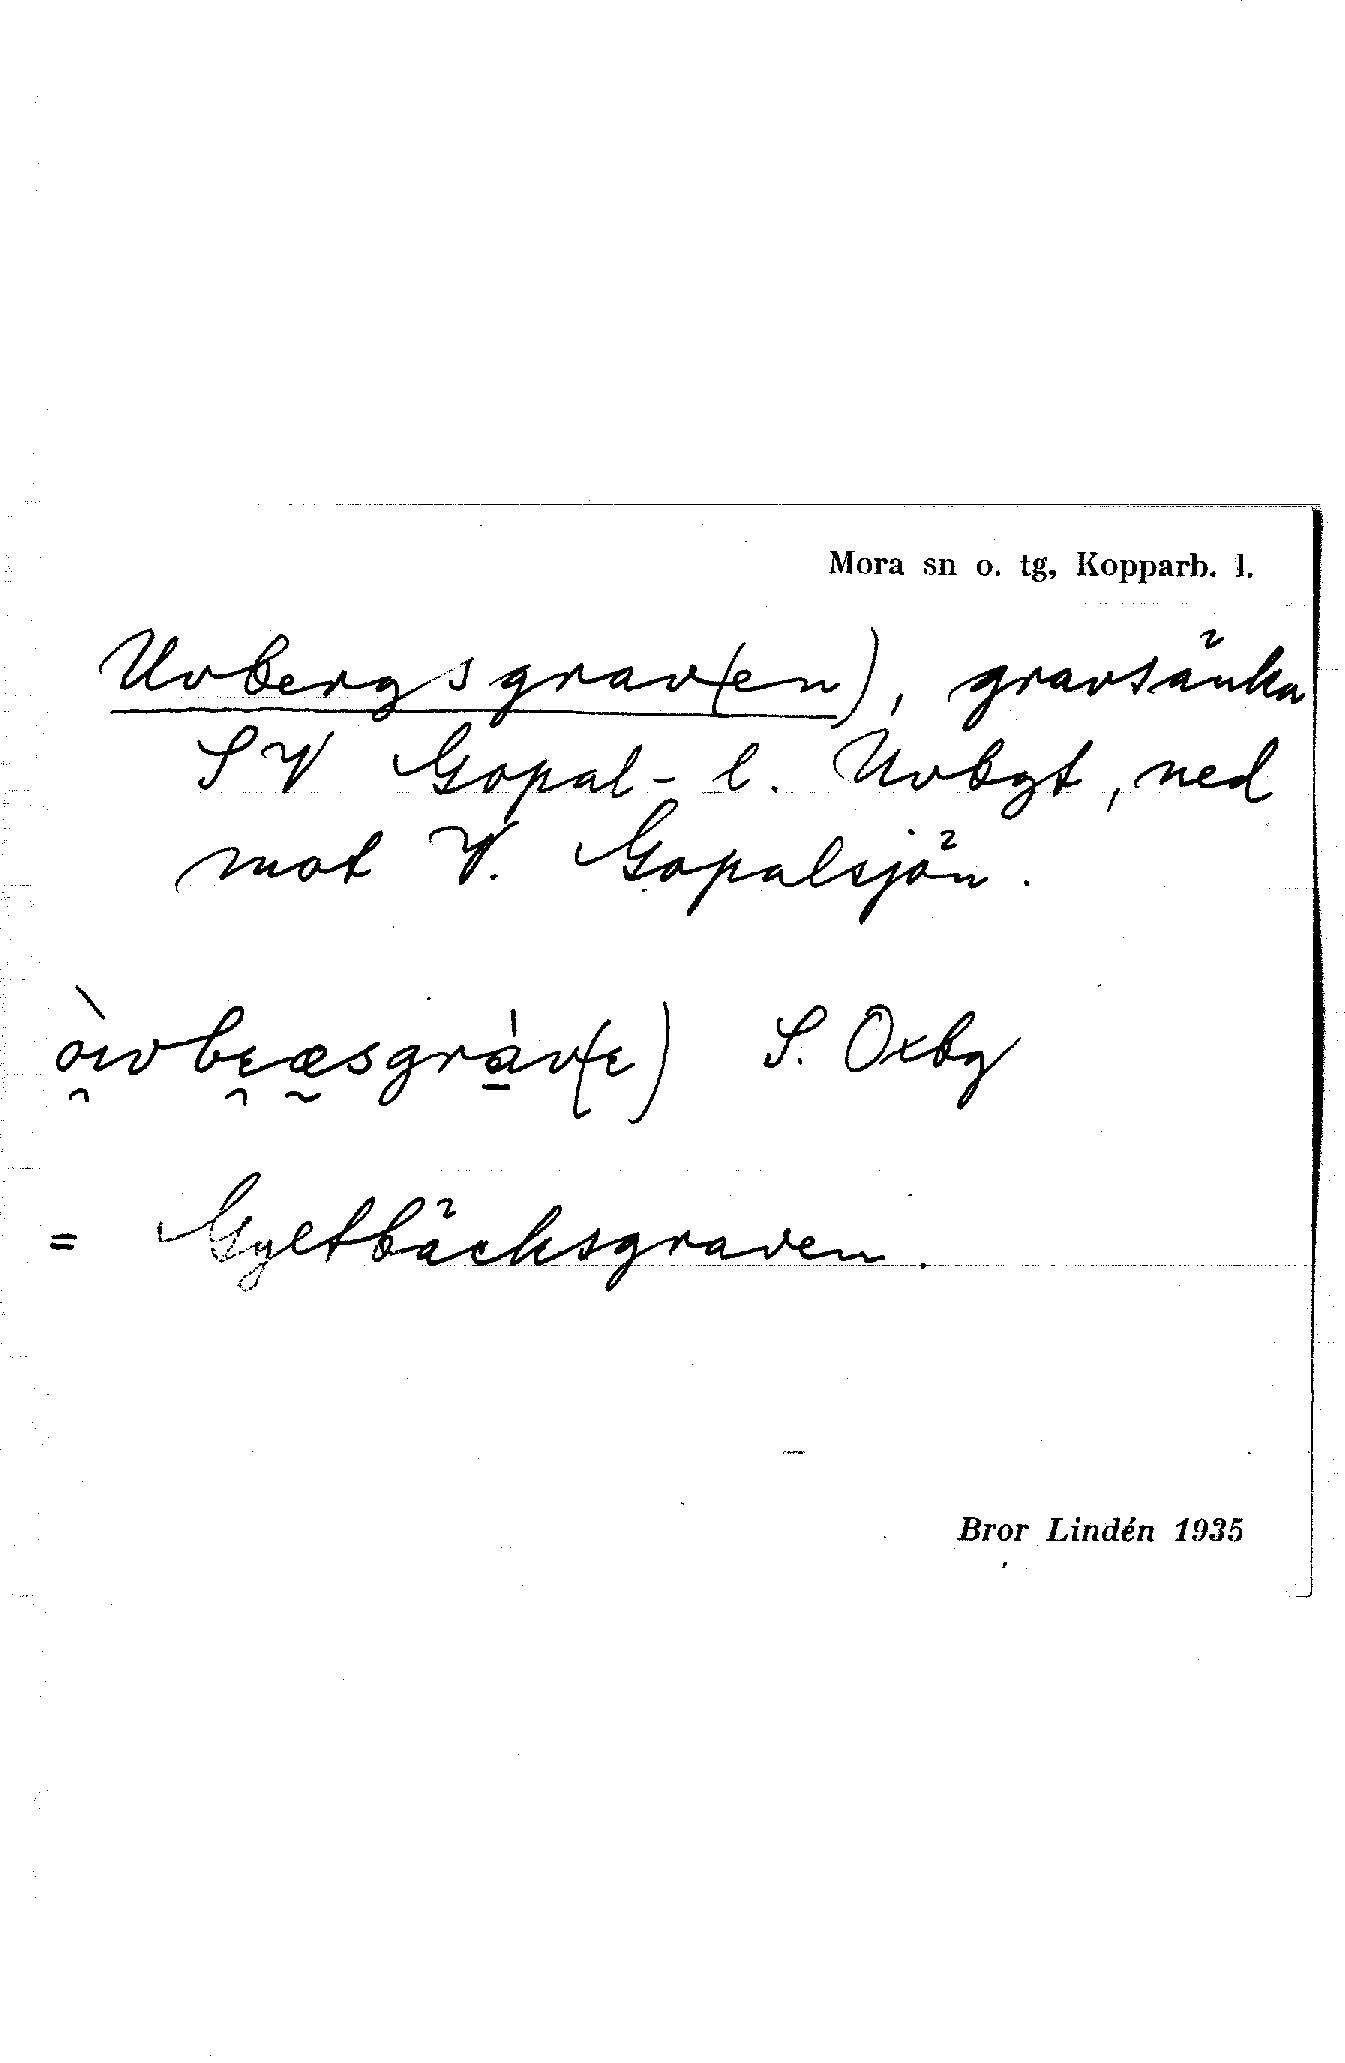 Mora sn o. tg, Kopparb. l.
Uvbergsgrav(en), gravsänka
SV Gopal- l. Uvbgt, ned
mot V. Gopalsjön.
òıvbɛæsgràv(ɛ) S. Oxbg
= Gyltbäcksgraven.
Bror Lindén 1935